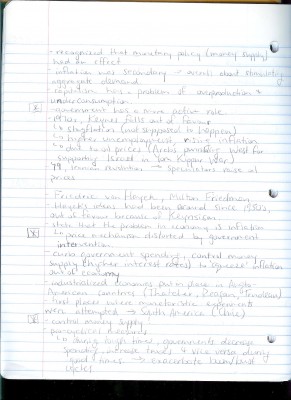 - recognized that monetary policy (money supply)
had an effect
- inflation was secondary → events about stimulating
aggregate demand
- capitalism has a problem of overproduction &
underconsumption
- government has a more active role
- 1970s, Keynes falls out of favour
↳ stagflation (not supposed to happen)
↳ higher unemployment, rising inflation
↳ due to oil prices (Arabs punishing West for
supporting Israel in Yom Kippur War)
↳ 79, Iranian revolution → speculators raise oil
prices
- Friedrich von Hayek, Milton Friedman
- Hayek's ideas have been around since 1930s,
out of favour because of Keynesian
- state that the problem to economy is inflation
↳ price mechanism distorted by government
intervention
- curb government spending, control money
supply (higher interest rates) to "squeeze" inflation
out of economy
- industrialized economies put in place in Anglo-
American countries (Thatcher, Reagan,
- first place where monetaristic experiments
were attempted → South America (Chile)
- control money supply
- pro-cyclical measures
↳ during tough times, governments decrease
spending, increase taxes & vice versa during
good times → exacerbate boom/bust
cycles